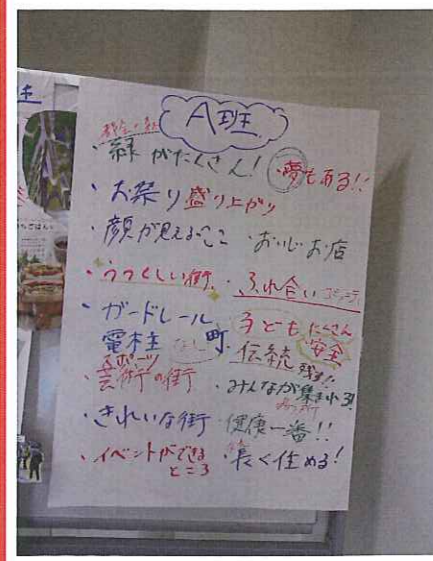 A班
・緑がたくさん! ・夢もある!!
・お祭り盛り上がり
・顔が見える ・おいしいお店
・うつくしい街 ・ふれ合い
・ガードレール 子どもたくさん
電柱なし町 安全
・伝統残る!!
スポーツ
・芸術の街 ・みんなが集まれる!
・きれいな街 ・健康一番!!
・イベントができる ・長く住める!
ところ